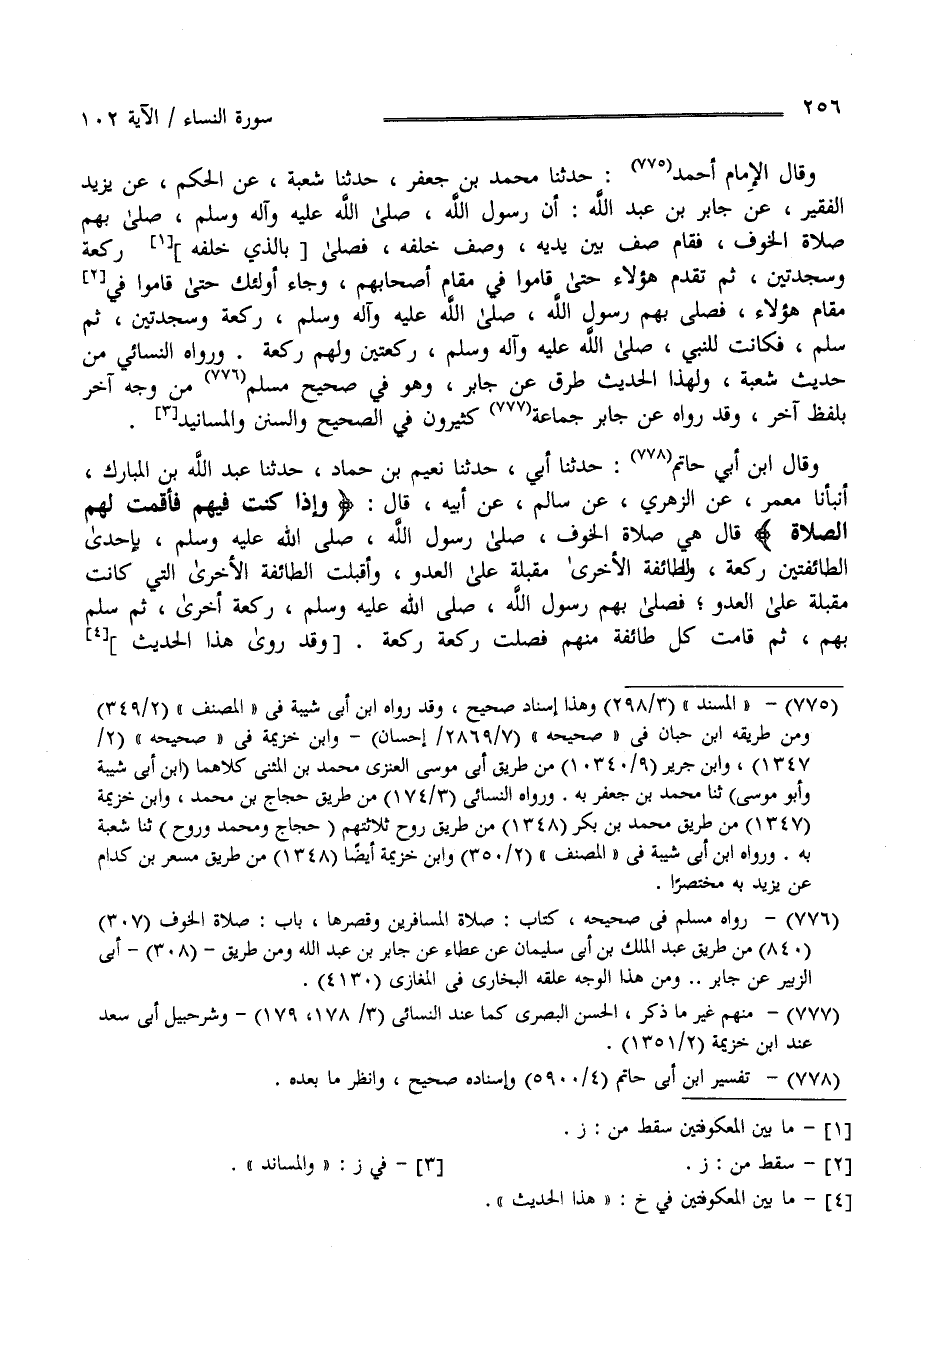 ٢٥٦ سورة النساء / الآية ١٠٢
وقال الإمام أحمد(٧٧٥) : حدثنا محمد بن جعفر ، حدثنا شعبة ، عن الحكم ، عن يزيد
الفقير ، عن جابر بن عبد اللَّه : أن رسول اللَّه ، صلىٰ اللَّه عليه وآله وسلم ، صلىٰ بهم
صلاة الخوف ، فقام صف بين يديه ، وصف خلفه ، فصلىٰ [ بالذي خلفه ][١] ركعة
وسجدتين ، ثم تقدم هؤلاء حتىٰ قاموا في مقام أصحابهم ، وجاء أولئك حتىٰ قاموا في[٢]
مقام هؤلاء ، فصلى بهم رسول اللَّه ، صلىٰ اللَّه عليه وآله وسلم ، ركعة وسجدتين ، ثم
سلم ، فكانت للنبي ، صلىٰ اللَّه عليه وآله وسلم ، ركعتين ولهم ركعة . ورواه النسائي من
حديث شعبة ، ولهذا الحديث طرق عن جابر ، وهو في صحيح مسلم(٧٧٦) من وجه آخر
بلفظ آخر ، وقد رواه عن جابر جماعة(٧٧٧) كثيرون في الصحيح والسنن والمسانيد[٣] .
وقال ابن أبي حاتم(٧٧٨) : حدثنا أبي ، حدثنا نعيم بن حماد ، حدثنا عبد اللَّه بن المبارك ،
أنبأنا معمر ، عن الزهري ، عن سالم ، عن أبيه ، قال : ﴿ وإذا كنت فيهم فأقمت لهم
الصلاة ﴾ قال هي صلاة الخوف ، صلىٰ رسول اللَّه ، صلى الله عليه وسلم ، بإحدىٰ
الطائفتين ركعة ، والطائفة الأخرىٰ مقبلة علىٰ العدو ، وأقبلت الطائفة الأخرىٰ التي كانت
مقبلة علىٰ العدو ؛ فصلىٰ بهم رسول اللَّه ، صلى الله عليه وسلم ، ركعة أخرىٰ ، ثم سلم
بهم ، ثم قامت كل طائفة منهم فصلت ركعة ركعة . [ وقد روىٰ هذا الحديث ][٤]
(٧٧٥) - « المسند » (٢٩٨/٣) وهذا إسناد صحيح ، وقد رواه ابن أبى شيبة فى « المصنف » (٣٤٩/٢)
ومن طريقه ابن حبان فى « صحيحه » (٢٨٦٩/٧/ إحسان) - وابن خزيمة فى « صحيحه » (٢/
١٣٤٧) ، وابن جرير (١٠٣٤٠/٩) من طريق أبى موسى العنزى محمد بن المثنى كلاهما (ابن أبى شيبة
وأبو موسى) ثنا محمد بن جعفر به . ورواه النسائى (١٧٤/٣) من طريق حجاج بن محمد ، وابن خزيمة
(١٣٤٧) من طريق محمد بن بكر (١٣٤٨) من طريق روح ثلاثتهم ( حجاج ومحمد وروح ) ثنا شعبة
به . ورواه ابن أبى شيبة فى « المصنف » (٣٥٠/٢) وابن خزيمة أيضًا (١٣٤٨) من طريق مسعر بن كدام
عن يزيد به مختصرًا .
(٧٧٦) - رواه مسلم فى صحيحه ، كتاب : صلاة المسافرين وقصرها ، باب : صلاة الخوف (٣٠٧)
(٨٤٠) من طريق عبد الملك بن أبى سليمان عن عطاء عن جابر بن عبد الله ومن طريق - (٣٠٨) - أبى
الزبير عن جابر .. ومن هذا الوجه علقه البخارى فى المغازى (٤١٣٠) .
(٧٧٧) - منهم غير ما ذكر ، الحسن البصرى كما عند النسائى (٣/ ١٧٨، ١٧٩) - وشرحبيل أبى سعد
عند ابن خزيمة (١٣٥١/٢) .
(٧٧٨) - تفسير ابن أبى حاتم (٥٩٠٠/٤) وإسناده صحيح ، وانظر ما بعده .
[١] - ما بين المعكوفتين سقط من : ز .
[٢] - سقط من : ز . [٣] - في ز : « والمساند » .
[٤] - ما بين المعكوفتين في خ : « هذا الحديث » .